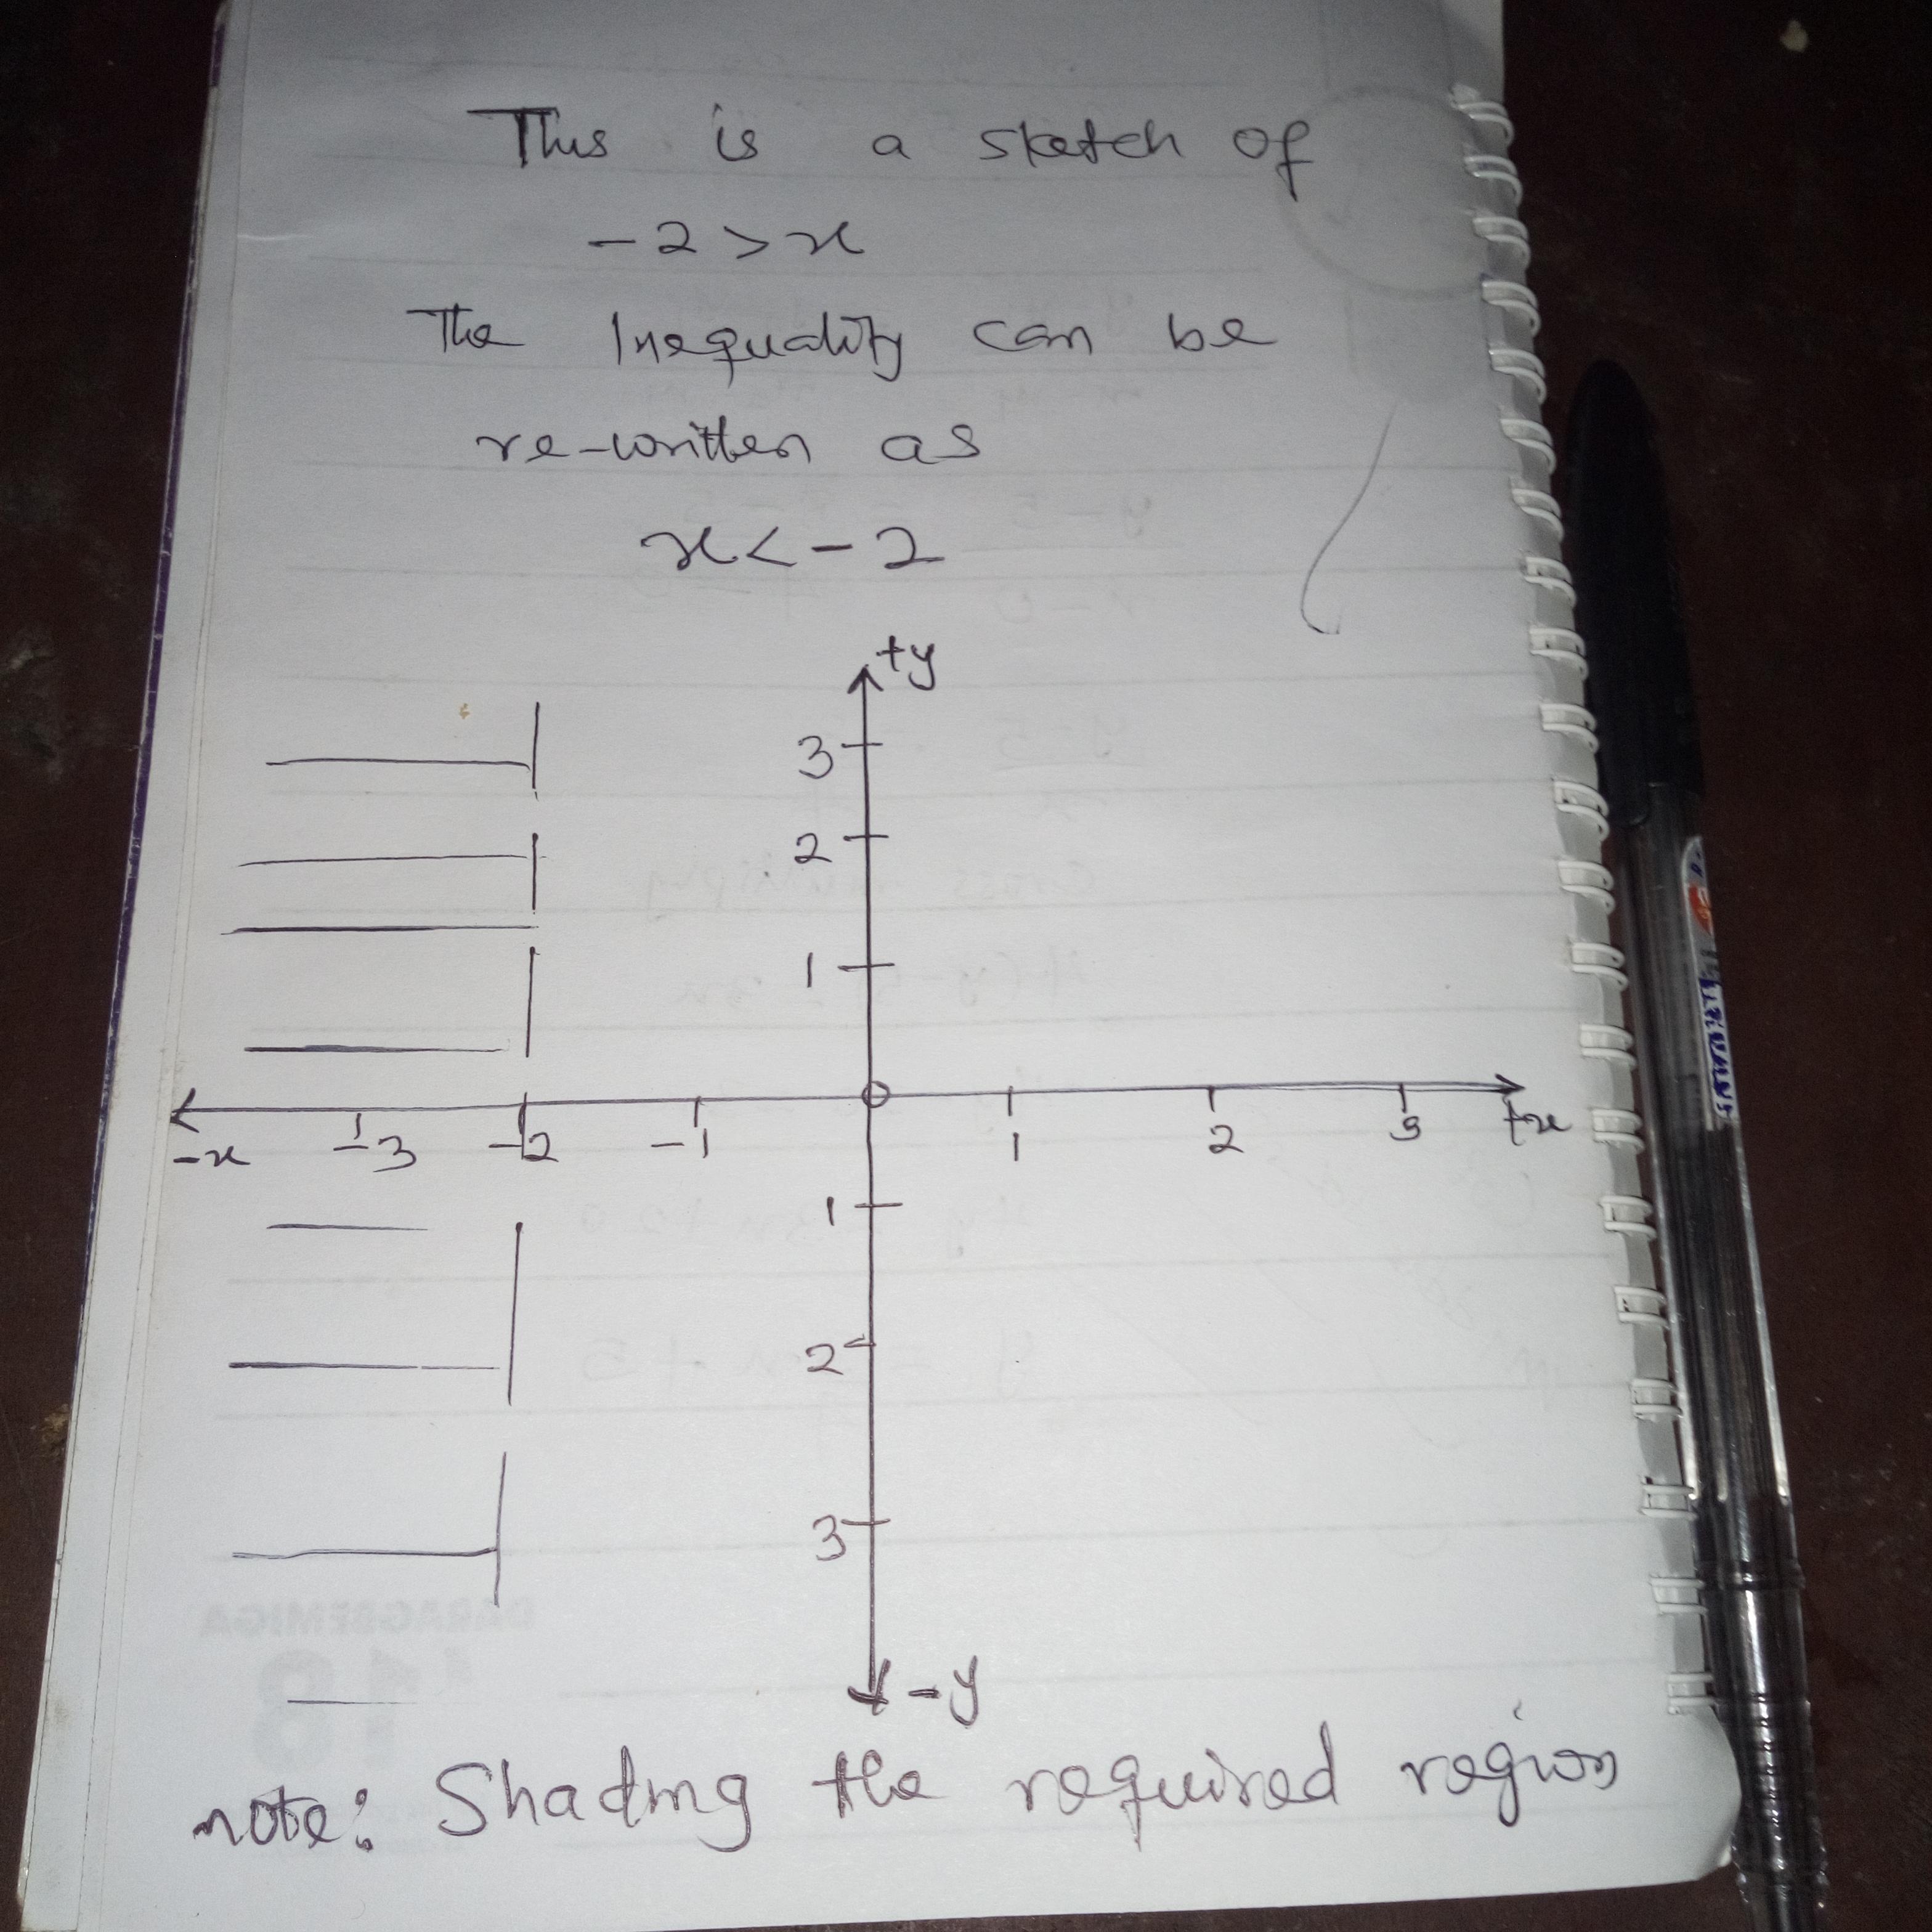 This is a sketch of
-2 > x
The Inequality can be
re-written as
x < -2
+y
3
2
1
-x -3 -2 -1 1 2 3 +x
1
2
3
-y
note: Shading the required region